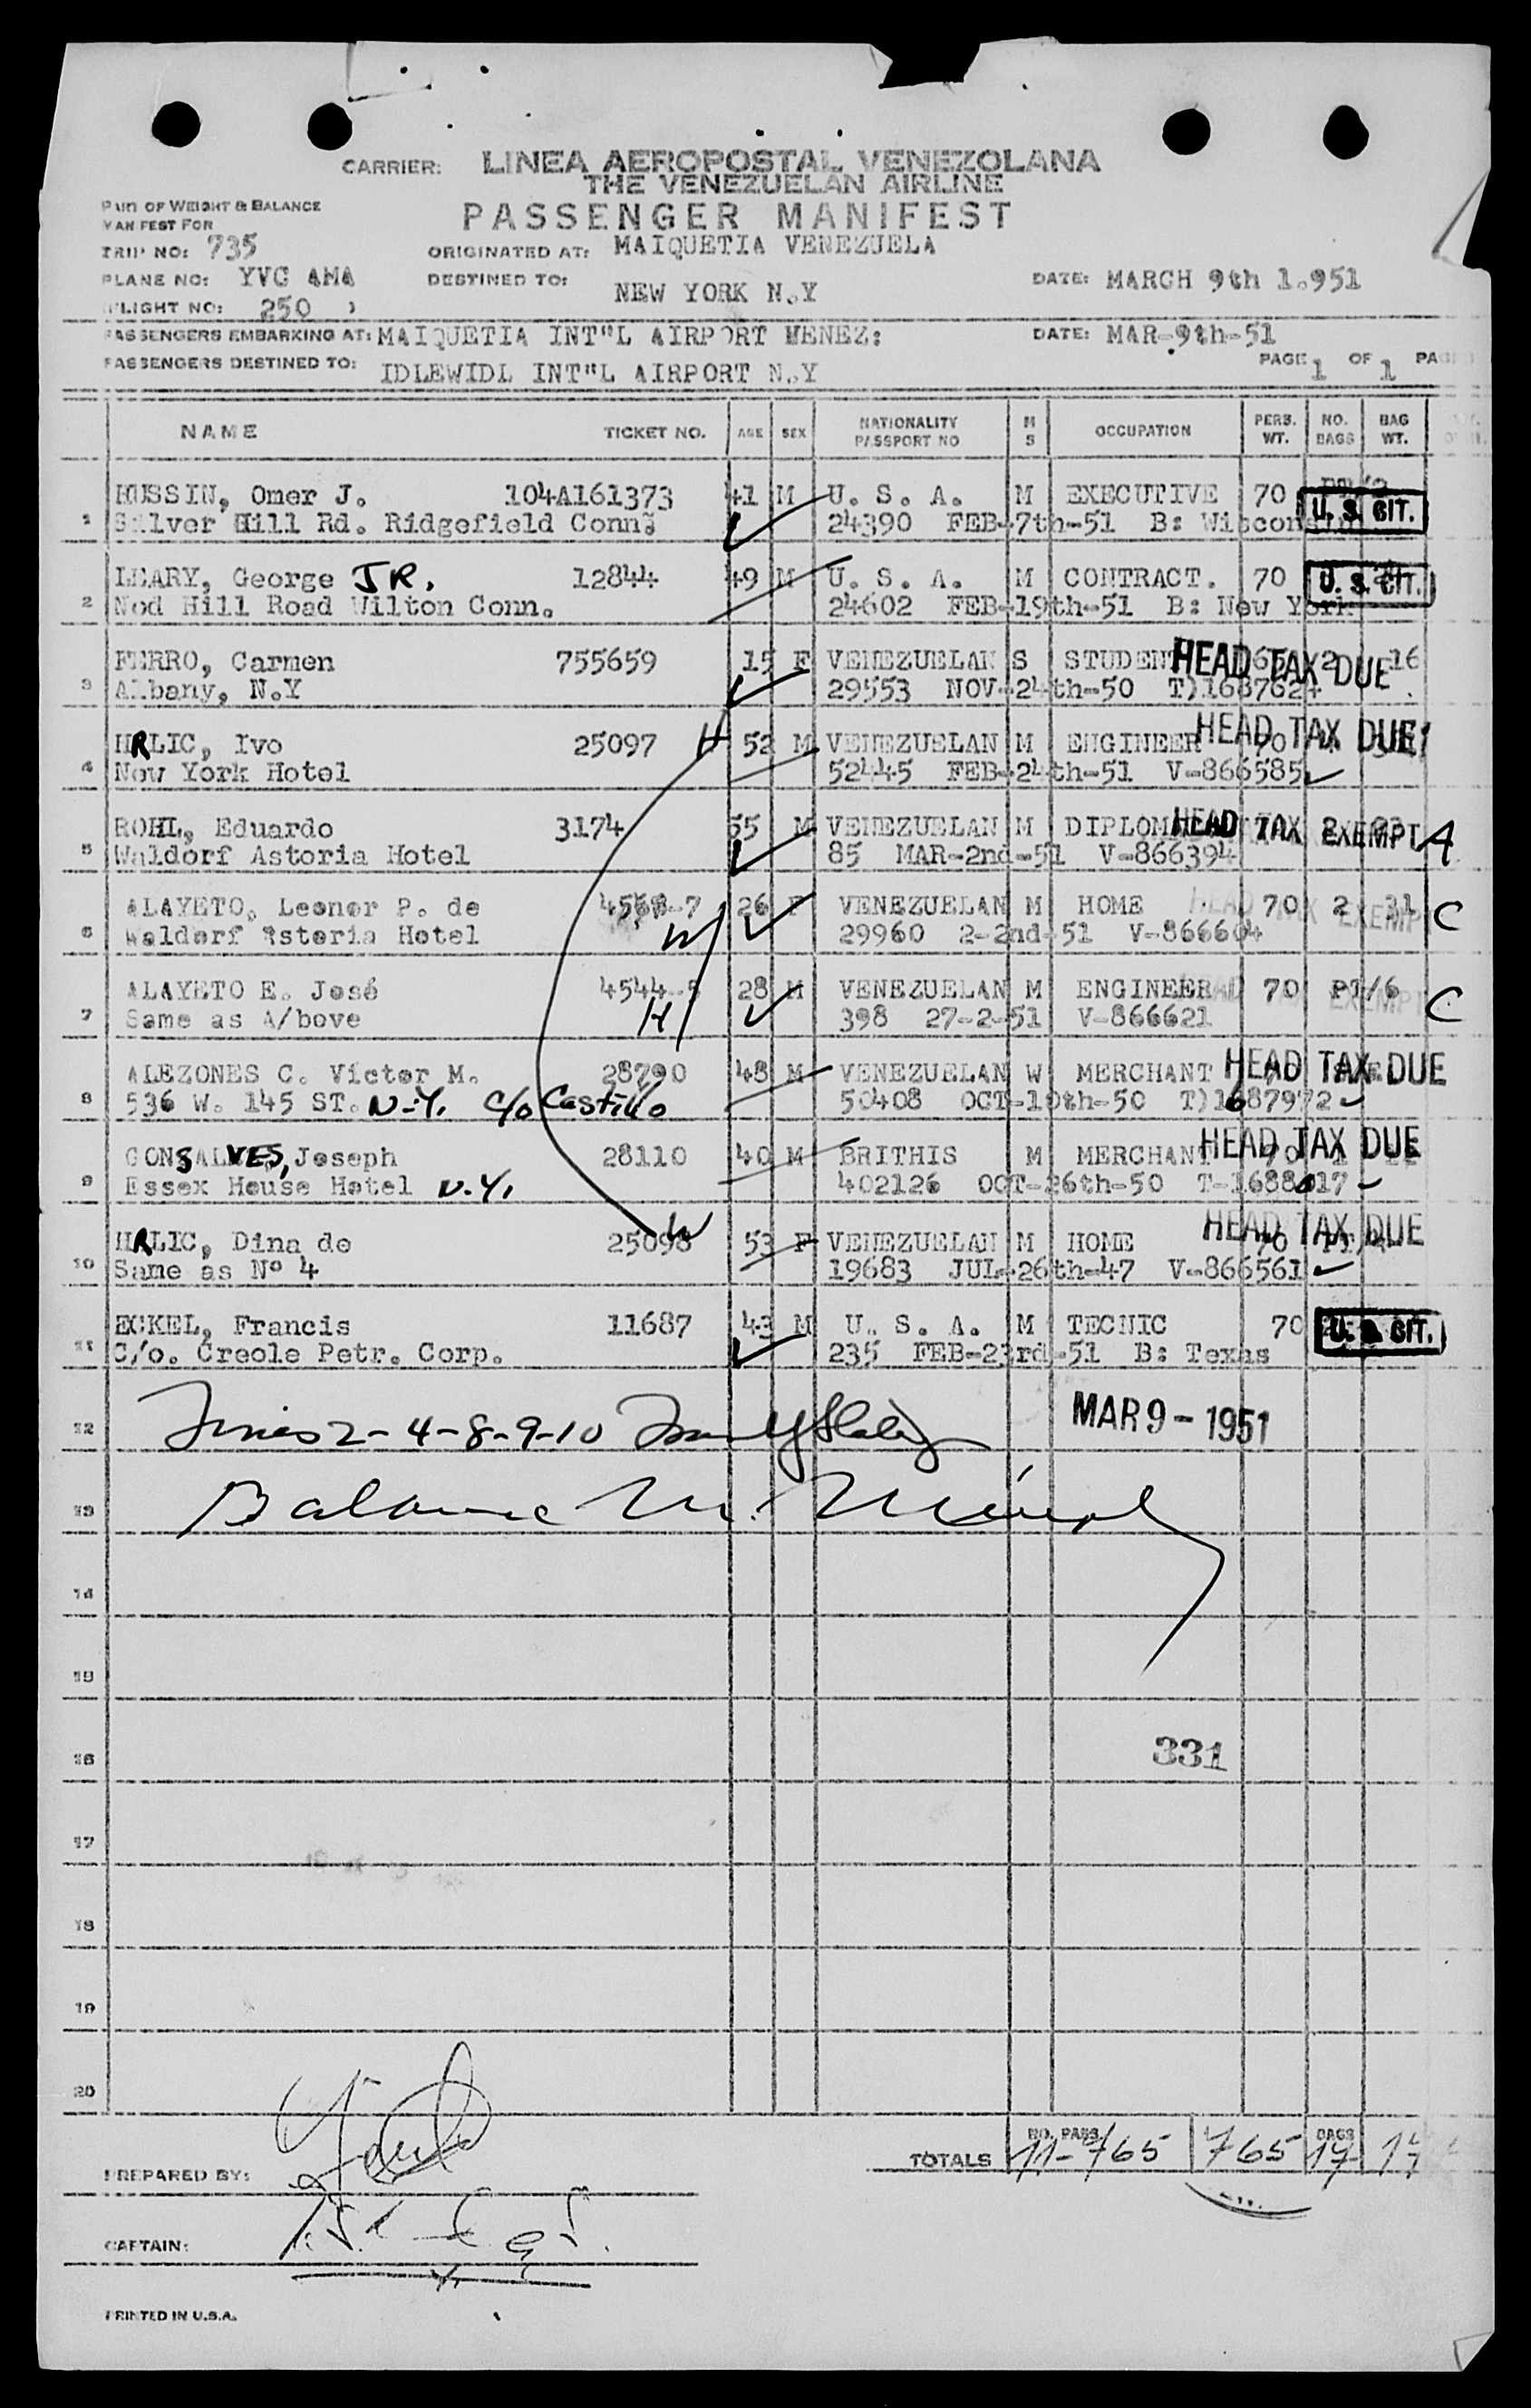 CARRIER: LINEA AEROPOSTAL VENEZOLANA
THE VENEZUELAN AIRLINE
PASSENGER MANIFEST
PART OF WEIGHT & BALANCE
MANIFEST FOR
TRIP NO: 735 ORIGINATED AT: MAIQUETIA VENEZUELA
PLANE NO: YVC AMA DESTINED TO: NEW YORK N.Y DATE: MARCH 9th 1.951
FLIGHT NO: 250
PASSENGERS EMBARKING AT: MAIQUETIA INT"L AIRPORT WENEZ: DATE: MAR-9th-51
PASSENGERS DESTINED TO: IDLEWIDL INT"L AIRPORT N.Y PAGE 1 OF 1
NAME TICKET NO. AGE SEX NATIONALITY PASSPORT NO M S OCCUPATION PERS. WT. NO. BAGS BAG WT.
1 HUSSIN, Omer J. 104A161373 41 M U. S. A. M EXECUTIVE 70 U. S. CIT.
Silver Hill Rd. Ridgefield Conn: 24390 FEB-7th-51 B: Wisconsin
2 LEARY, George JR. 12844 49 M U. S. A. M CONTRACT. 70 U. S. CIT.
Nod Hill Road Wilton Conn. 24602 FEB-19th-51 B: New York
3 FERRO, Carmen 755659 15 F VENEZUELAN S STUDENT HEAD TAX DUE 2 16
Albany, N.Y 29553 NOV-24th-50 T)1687624
4 HRLIC, Ivo 25097 H 52 M VENEZUELAN M ENGINEER 70 HEAD TAX DUE
New York Hotel 52445 FEB-24th-51 V-866585
5 ROHL, Eduardo 3174 55 M VENEZUELAN M HEAD TAX EXEMPT A
Waldorf Astoria Hotel 85 MAR-2nd-51 V-866394
6 ALAYETO, Leonor P. de 26 F VENEZUELAN M HOME 70 2 31 HEAD TAX EXEMPT C
Waldorf Astoria Hotel W 29960 2-2nd-51 V-866604
7 ALAYETO E. José 4544-5 28 M VENEZUELAN M ENGINEER 70 PT/6 HEAD EXEMPT C
Same as A/bove H 398 27-2-51 V-866621
8 ALEZONES C. Victor M. 28790 48 M VENEZUELAN W MERCHANT HEAD TAX DUE
536 W. 145 ST. N.Y. c/o Castillo 50408 OCT-10th-50 T)1687972
9 GONSALVES, Joseph 28110 40 M BRITHIS M MERCHANT HEAD TAX DUE
Essex House Hotel N.Y. 402126 OCT-26th-50 T-1688017
10 HRLIC, Dina de 25098 W 53 F VENEZUELAN M HOME 70 HEAD TAX DUE
Same as Nº 4 19683 JUL-26th-47 V-866561
11 ECKEL, Francis 11687 43 M U. S. A. M TECNIC 70 U. S. CIT.
C/o. Creole Petr. Corp. 235 FEB-23rd-51 B: Texas
12 Lines 2-4-8-9-10 MAR 9 - 1951
13 Balance M.
14
15
16 331
17
18
19
20
TOTALS NO. PASS. 11-765 765 BAGS 17
PREPARED BY:
CAPTAIN:
PRINTED IN U.S.A.